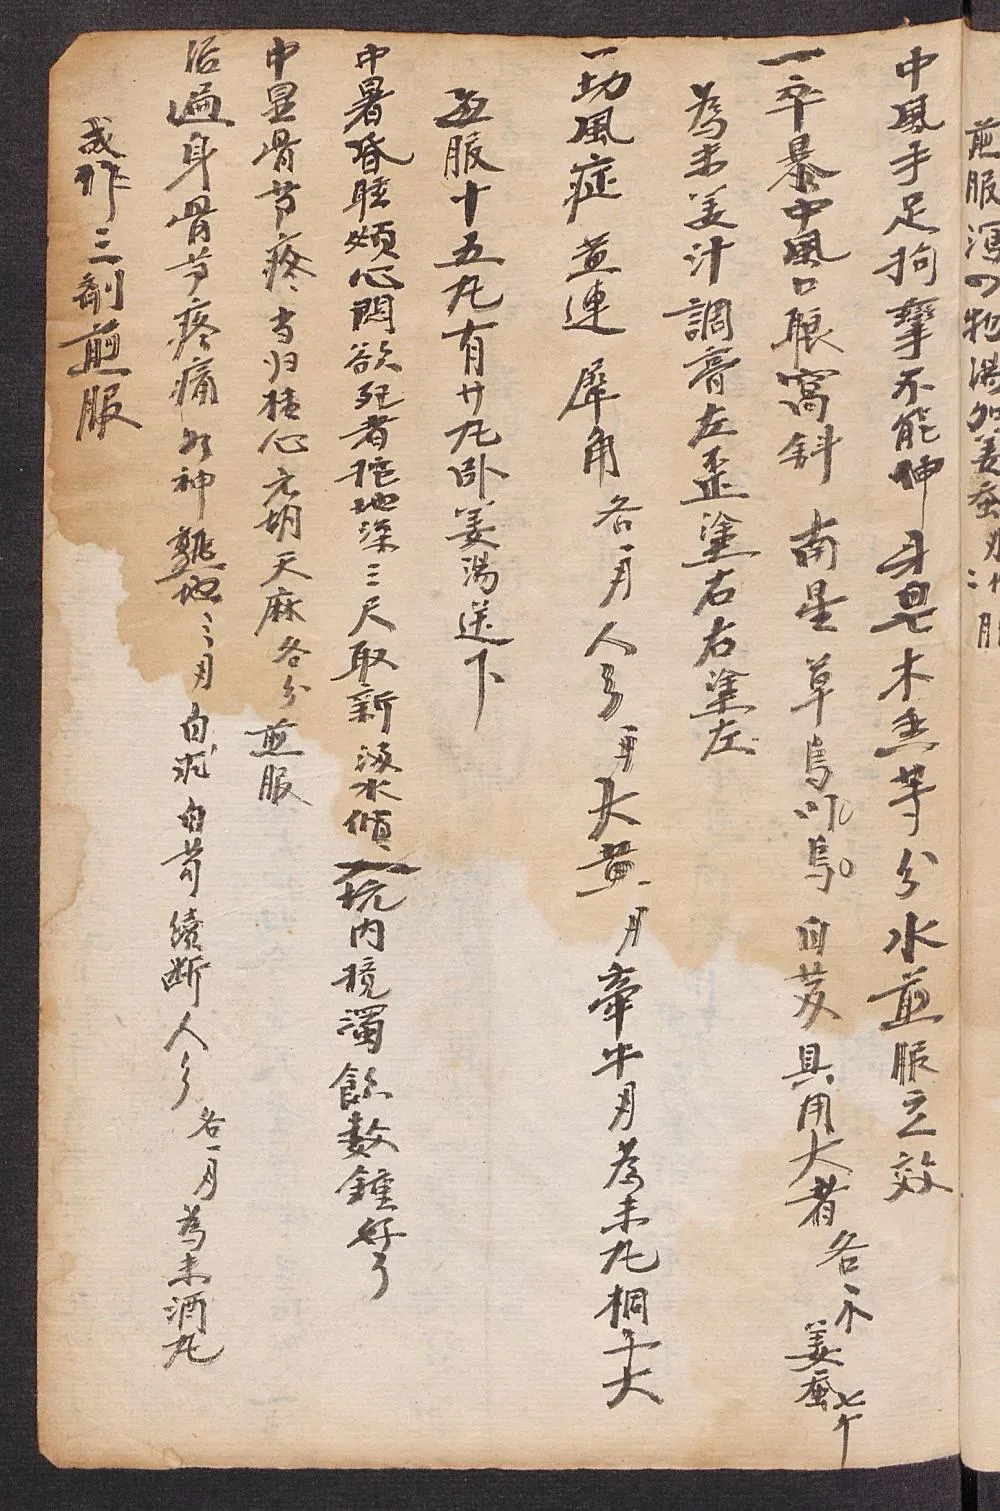 煎服泻四物湯加姜蚕
中風手足拘攣不能伸 皂 木 等分水煎服立效
一卒暴中風口眼窩斜 南星 草烏 川烏 白芨 具用大者 各一 姜蚕七个
為末姜汁調膏左歪塗右右塗左
一切風症 黄連 犀角 各一月 人 大黄一月 牽牛月為末丸桐子大
五服十五丸有廿丸卧姜湯送下
中暑昏睡煩心悶欲死者挖地深三尺取新汲水傾入坑内攪濁飲数鍾好了
中濕骨节疼 当归 桂心 元胡 天麻 各分煎服
治遍身骨节疼痛如神 熟地三月 白 白芍 續断 人 各一月為末酒丸
或作三劑煎服